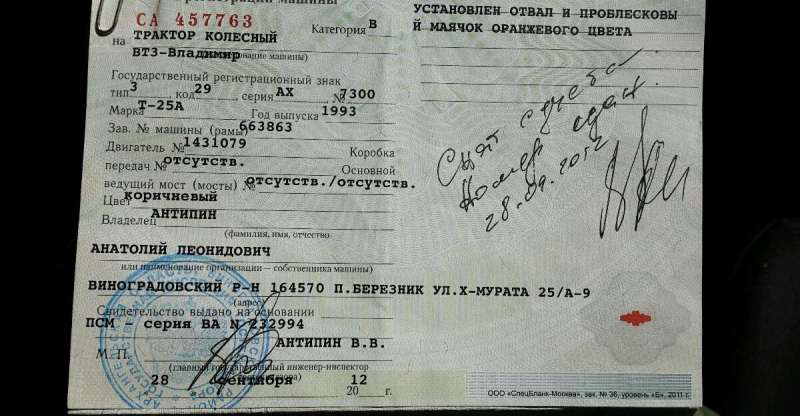 регистрации машины
СА 457763
Категория В
на ТРАКТОР КОЛЕСНЫЙ
ВТЗ-Владимир
(наименование машины)
Государственный регистрационный знак
тип 3 код 29 серия АХ № 7300
Марка Т-25А Год выпуска 1993
Зав. № машины (рамы) 663863
Двигатель № 1431079 Коробка
передач № ОТСУТСТВ. Основной
ведущий мост (мосты) № ОТСУТСТВ./ОТСУТСТВ.
Цвет коричневый
Владелец АНТИПИН
(фамилия, имя, отчество
АНАТОЛИЙ ЛЕОНИДОВИЧ
или наименование организации — собственника машины)
ВИНОГРАДОВСКИЙ Р-Н 164570 П.БЕРЕЗНИК УЛ.Х-МУРАТА 25/А-9
(адрес)
Свидетельство выдано на основании
ПСМ - серия ВА N 232994
М.П. АНТИПИН В.В.
(главный государственный инженер-инспектор
28 сентября 12
20 г.
УСТАНОВЛЕН ОТВАЛ И ПРОБЛЕСКОВЫ
Й МАЯЧОК ОРАНЖЕВОГО ЦВЕТА
Снят с учета.
Номер сдан.
28.09.2012
ООО «СпецБланк-Москва», зак. № 36, уровень «Б», 2011 г.